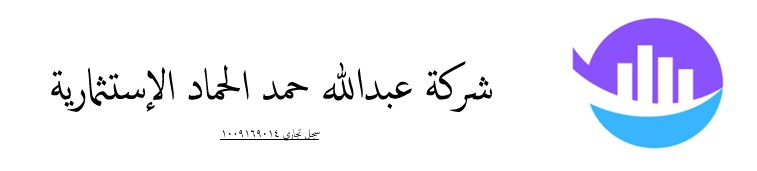 شركة عبدالله حمد الحماد الإستثمارية
سجل تجاري ١٠٠٩١٦٩٠١٤